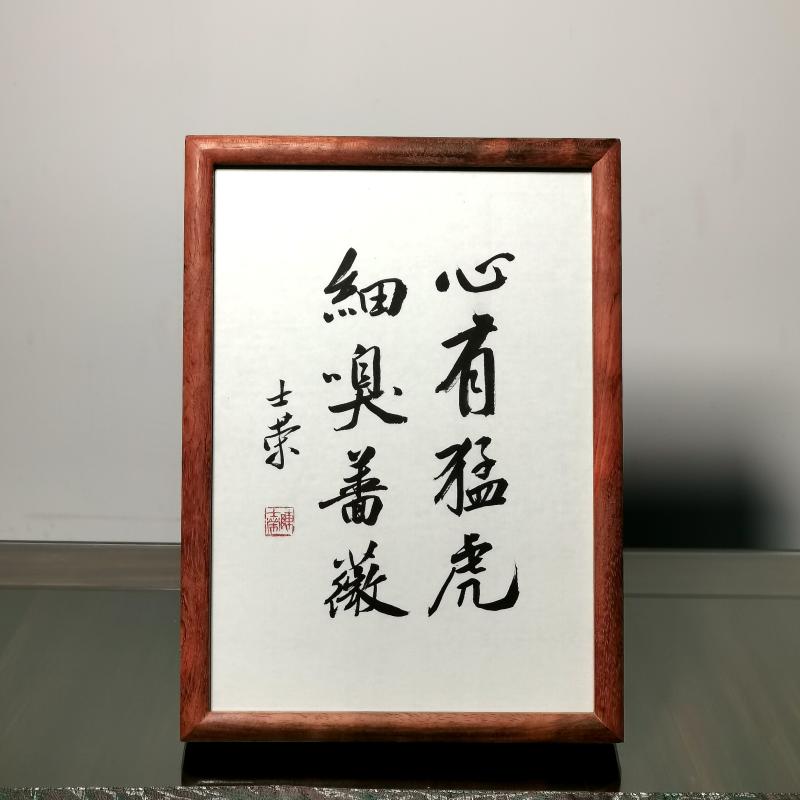 心有猛虎
細嗅薔薇
士荣